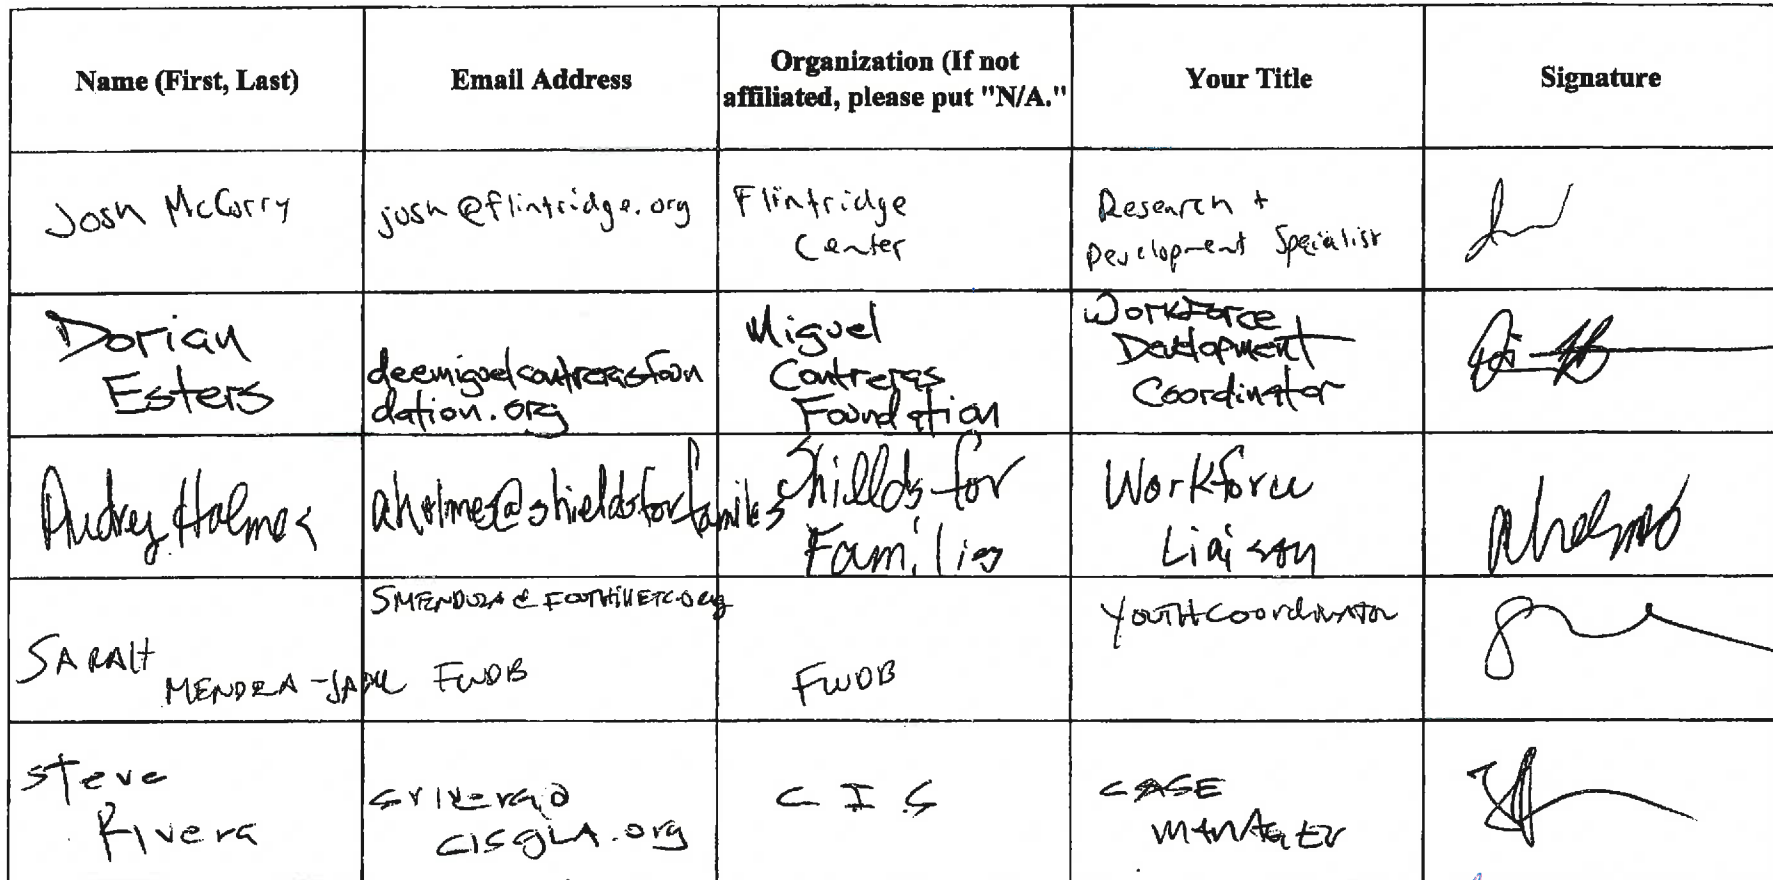 Name (First, Last)
Email Address
Organization (If not
affiliated, please put "N/A."
Your Title
Signature
Josh McCurry
josh@flintridge.org
Flintridge
Center
Research +
Development Specialist
Dorian
Esters
deemiguelcontrerasfoun
dation.org
Miguel
Contreras
Foundation
Workforce
Development
Coordinator
Audrey Holmes
aholmes@shieldsforfamilies
Shields for
Families
Workforce
Liaison
SARAH
MENDOZA
FWDB
FWDB
YOUTH Coordinator
Steve
Rivera
srivera@
cisgLA.org
C I S
CASE
MANAGER